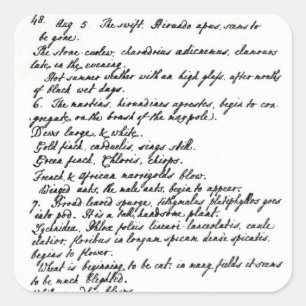 48. Aug 5 The swift, Hirundo apus, seems to
be gone.
The stone curlew, charadrius œdicnemus, clamours
late in the evening.
Hot summer weather with an high glass, after months
of black wet days.
6. The martins, hirundines agrestes, begin to con-
gregate on the of the maypole.
Dews large, & white.
Gold finch, carduelis, sings still.
Green finch, Chloris, chirps.
French & African marrigolds blow.
Winged ants, the male ants, begin to appear.
7. Broad leaved spurge, tithymalus platiphyllos goes
into pod. It is a tall, handsome plant.
Lychnidea, Phlox foliis lineari lanceolatis, caule
elatior, floribus in longam spicam dense spicatis,
begins to flower.
Wheat is beginning to be cut; in many fields it seems
to be much blighted.